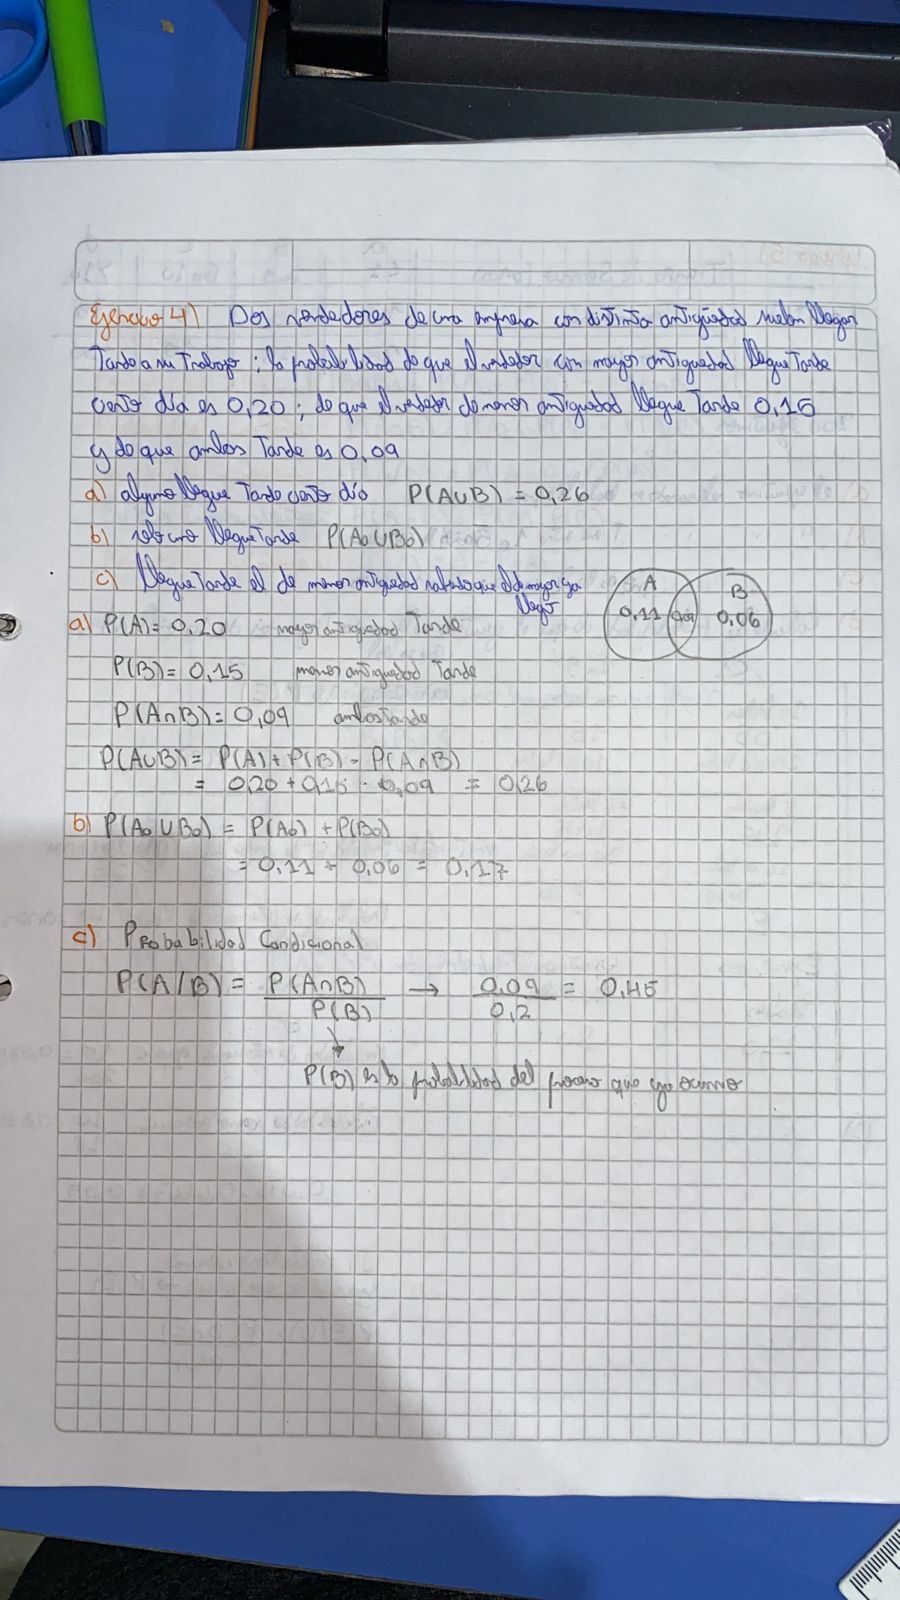 Ejercicio 4) Dos vendedores de una empresa con distinta antigüedad suelen llegar
Tarde a su Trabajo; la probabilidad de que el vendedor con mayor antiguedad llegue Tarde
cierto día es 0,20; de que el vendedor de menor antiguedad llegue Tarde 0,15
y de que ambos Tarde es 0,09
a) alguno llegue Tarde cierto día P(A∪B) = 0,26
b) solo uno llegue Tarde P(Ao∪Bo)
c) llegue Tarde el de menor antiguedad sabiendo que el de mayor ya
llegó
A B
0,11 0,09 0,06
a) P(A)= 0,20 mayor antiguedad Tarde
P(B)= 0,15 menor antiguedad Tarde
P(A∩B)= 0,09 ambos Tarde
P(A∪B)= P(A)+P(B)- P(A∩B)
= 0,20 + 0,15 - 0,09 = 0,26
b) P(Ao∪Bo) = P(Ao) + P(Bo)
= 0,11 + 0,06 = 0,17
c) Probabilidad Condicional
P(A/B) = P(A∩B) / P(B) → 0,09 / 0,2 = 0,45
↓
P(B) es la probabilidad del que ya ocurrio